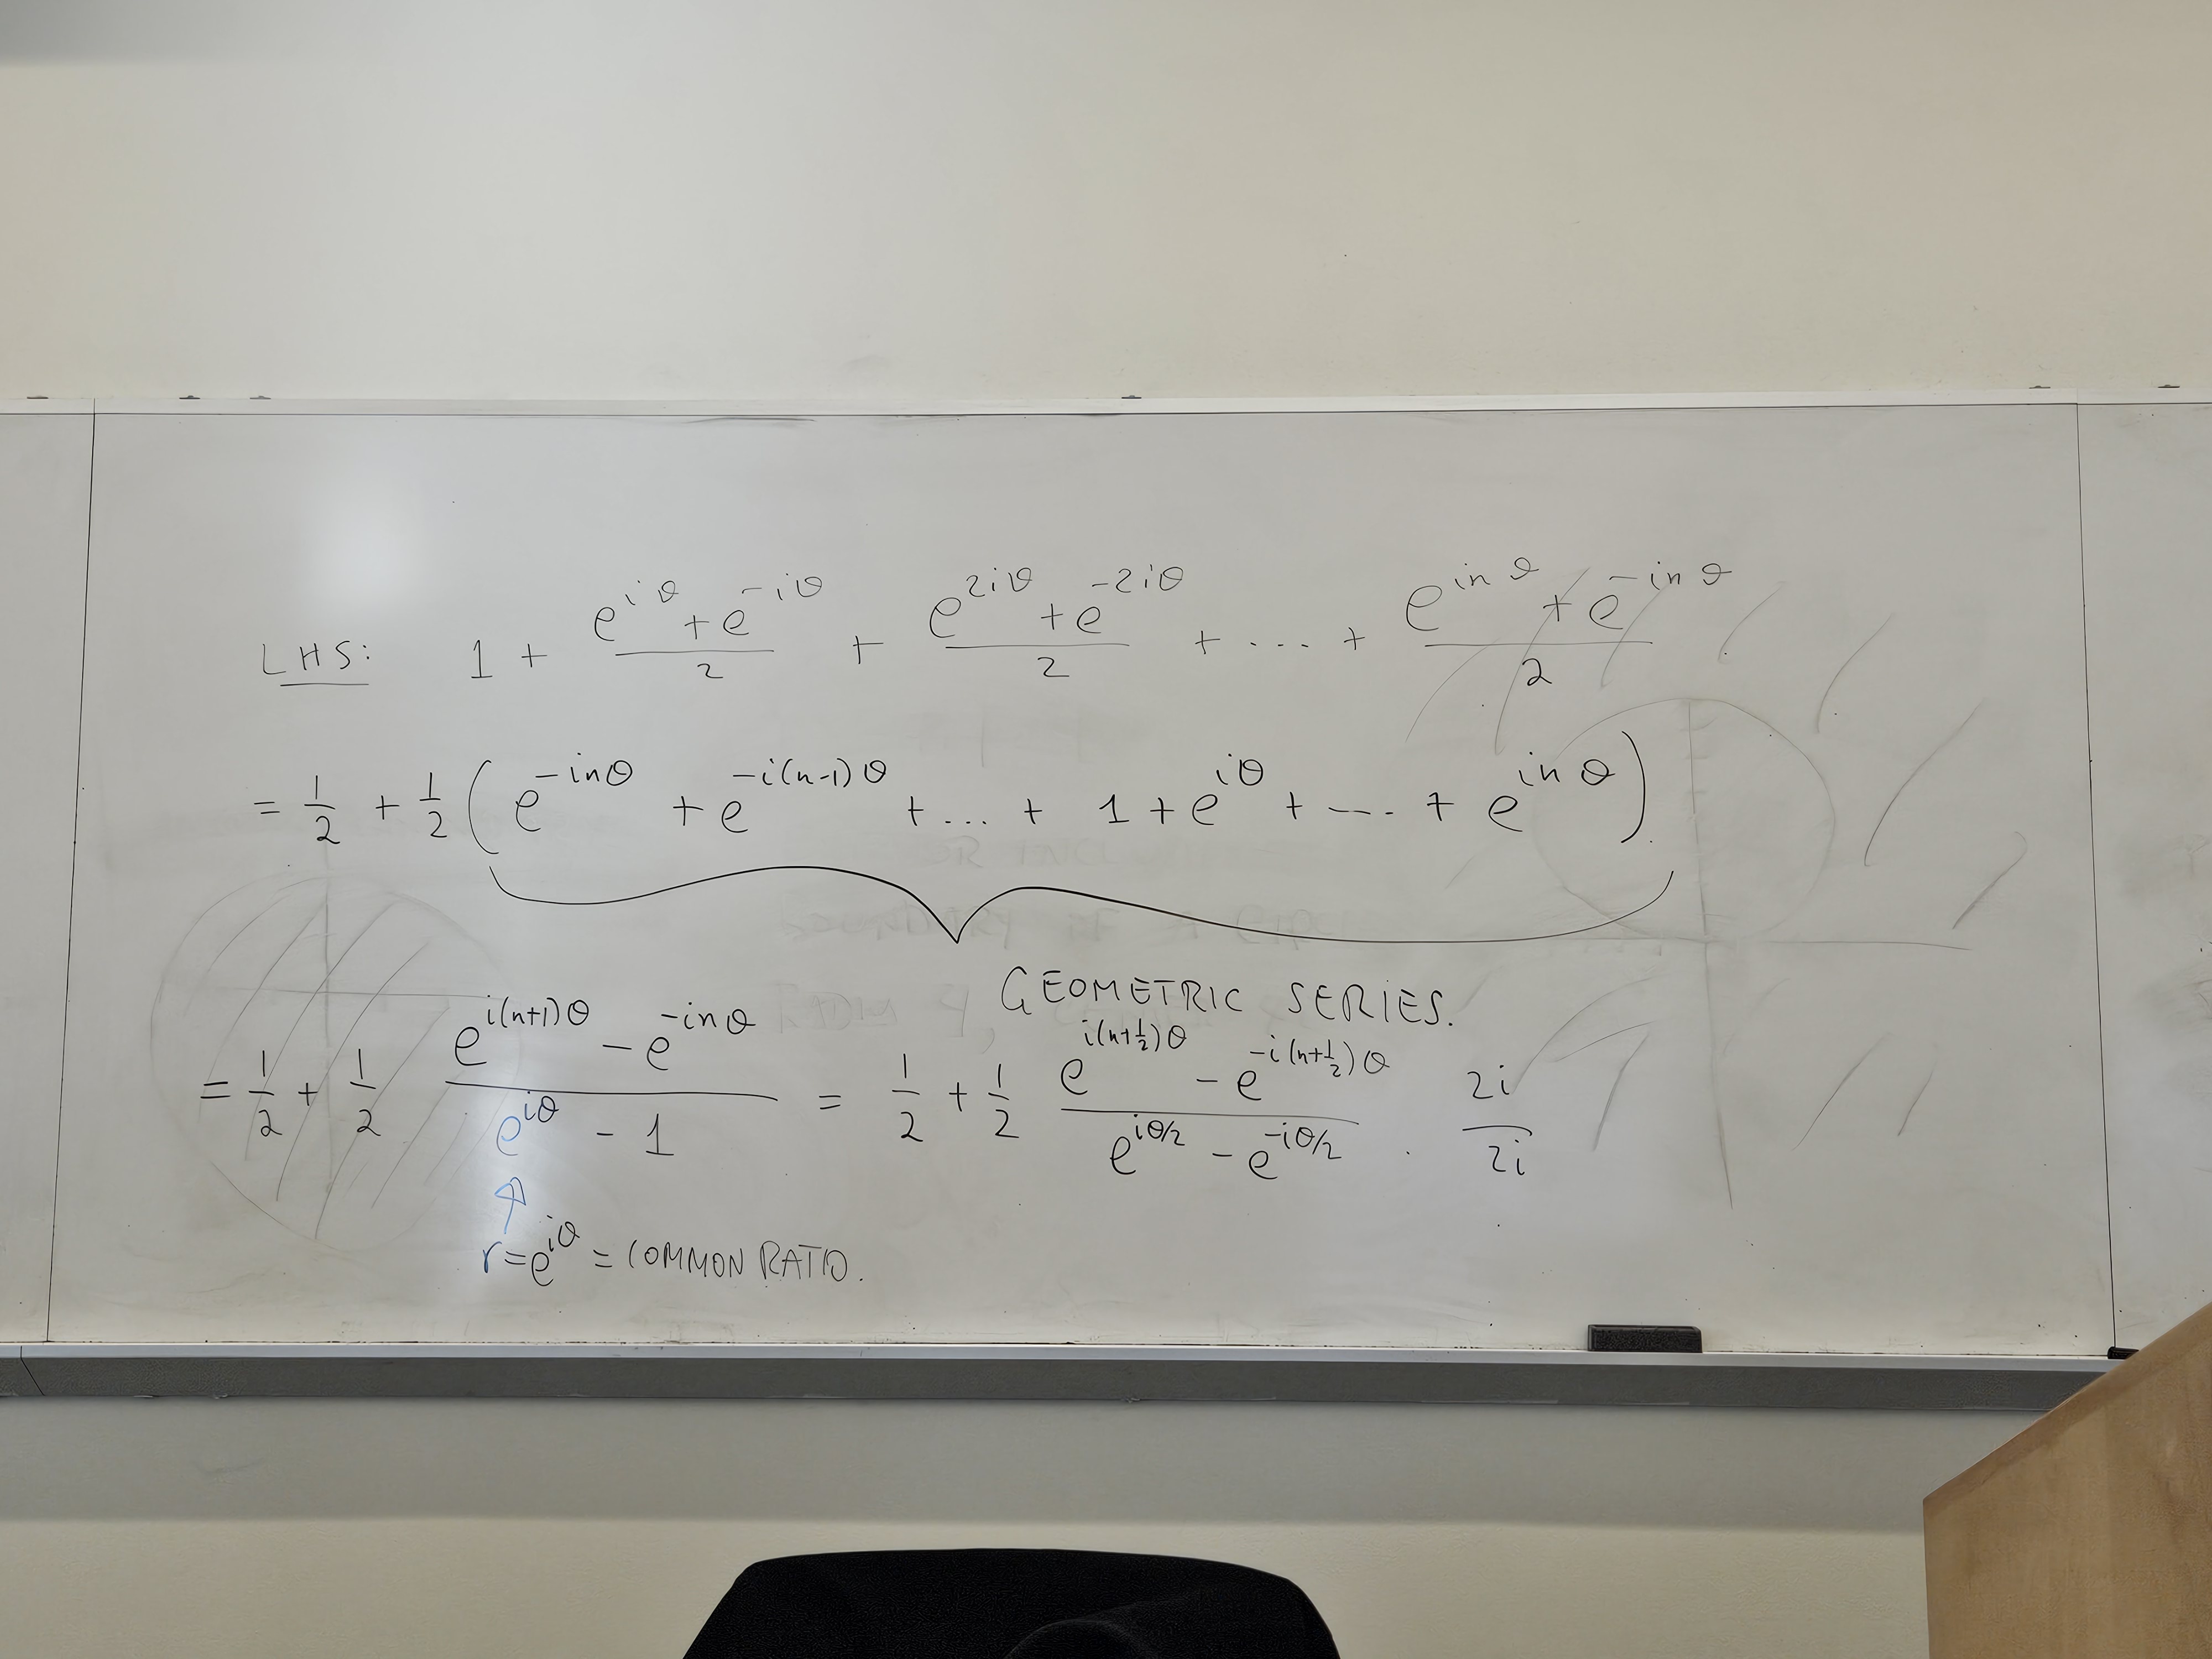 LHS: 1 + (e^{iθ} + e^{-iθ})/2 + (e^{2iθ} + e^{-2iθ})/2 + .... + (e^{inθ} + e^{-inθ})/2
= 1/2 + 1/2 ( e^{-inθ} + e^{-i(n-1)θ} + ... + 1 + e^{iθ} + ---. + e^{inθ} )
GEOMETRIC SERIES.
= 1/2 + 1/2 (e^{i(n+1)θ} - e^{-inθ})/(e^{iθ} - 1) = 1/2 + 1/2 (e^{i(n+1/2)θ} - e^{-i(n+1/2)θ})/(e^{iθ/2} - e^{-iθ/2}) . 2i/2i
r=e^{iθ} = COMMON RATIO.